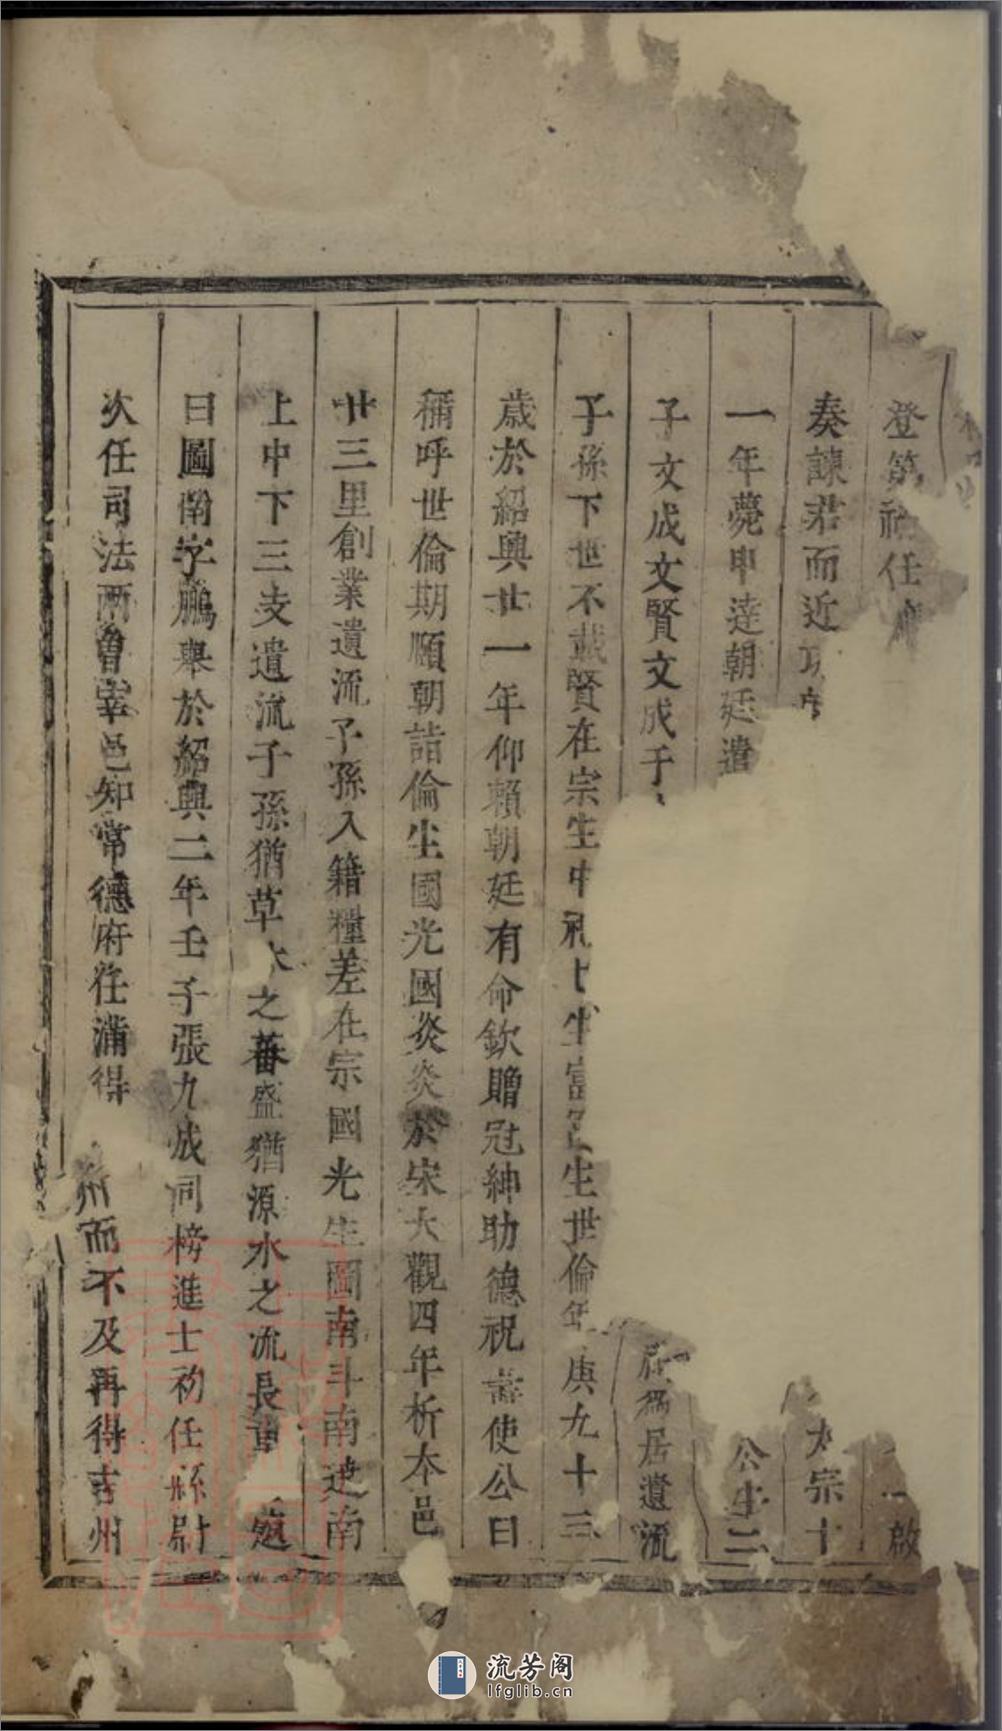 登第初任
奏諫君而近 太宗十
一年薨申達朝廷遣 公生二
子文成文賢文成于 居遺流
子孫下世不載賢在宗生中 生富 生世倫年庚九十三
歲於紹興廿一年仰賴朝廷有命欽贈冠紳助德祝壽使公曰
稱呼世倫期願朝詣倫生國光國炎炎於宋大觀四年析本邑
廿三里創業遺流子孫入籍糧差在宗國光生圖南斗南逵南
上中下三支遺流子孫猶草木之蕃盛猶源水之流長
曰圖南字鵬舉於紹興二年壬子張九成同榜進士初任縣尉
次任司法兩曾宰邑知常德府任滿得 州而不及再得吉州
流芳阁
lfglib.cn